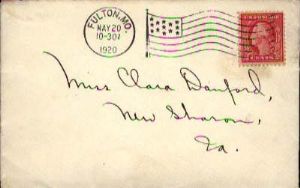 FULTON, MO.
MAY 20
10-30A
1920
Miss Clara Danford,
New Sharon,
Ia.